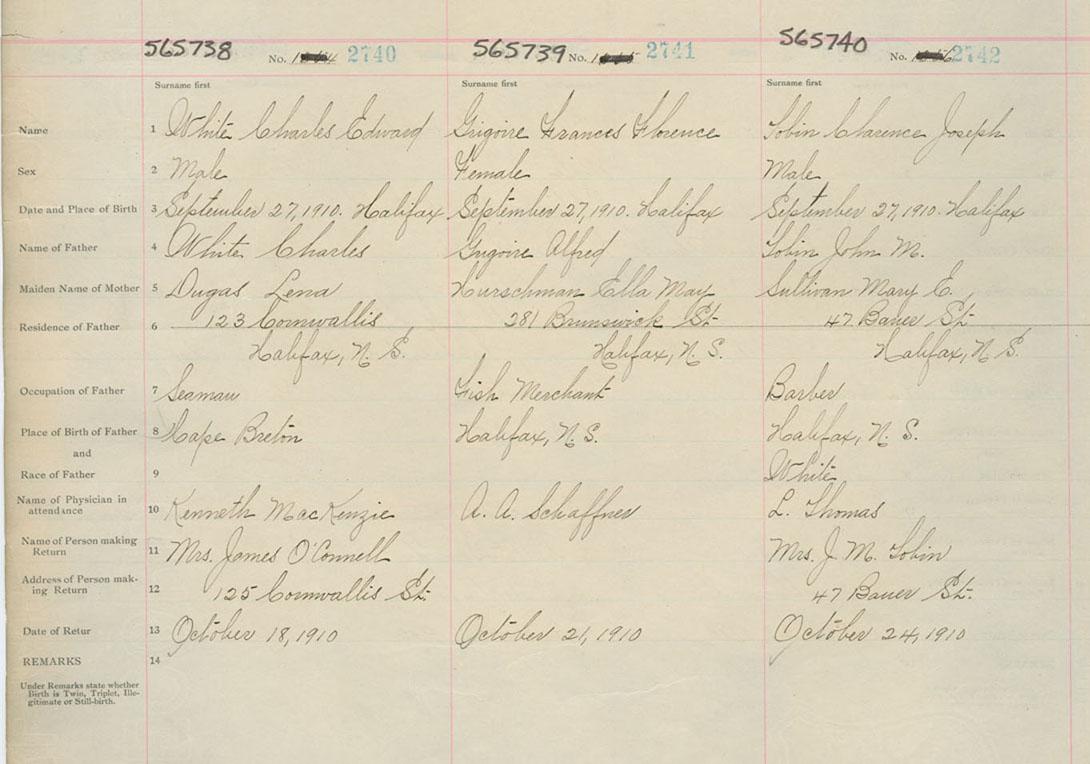 565738 No. 2740 565739 No. 2741 565740 No. 2742
Surname first Surname first Surname first
Name 1 White Charles Edward Grigoire Frances Florence Tobin Clarence Joseph
Sex 2 Male Female Male
Date and Place of Birth 3 September 27, 1910. Halifax September 27, 1910. Halifax September 27, 1910. Halifax
Name of Father 4 White Charles Grigoire Alfred Tobin John M.
Maiden Name of Mother 5 Dugas Lena Hurschman Ella May Sullivan Mary E.
Residence of Father 6 123 Cornwallis 281 Brunswick St. 47 Bauer St.
Halifax, N. S. Halifax, N. S. Halifax, N. S.
Occupation of Father 7 Seaman Fish Merchant Barber
Place of Birth of Father 8 Cape Breton Halifax, N. S. Halifax, N. S.
and
Race of Father 9 White
Name of Physician in
attendance 10 Kenneth MacKenzie A. A. Schaffner L. Thomas
Name of Person making
Return 11 Mrs. James O'Connell Mrs. J. M. Tobin
Address of Person mak-
ing Return 12 125 Cornwallis St. 47 Bauer St.
Date of Retur 13 October 18, 1910 October 21, 1910 October 24, 1910
REMARKS 14
Under Remarks state whether
Birth is Twin, Triplet, Ille-
gitimate or Still-birth.